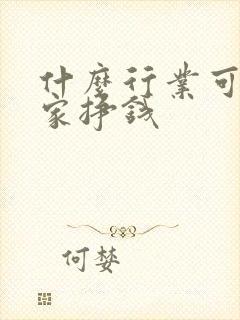 什麼行業可
家掙錢
何婪